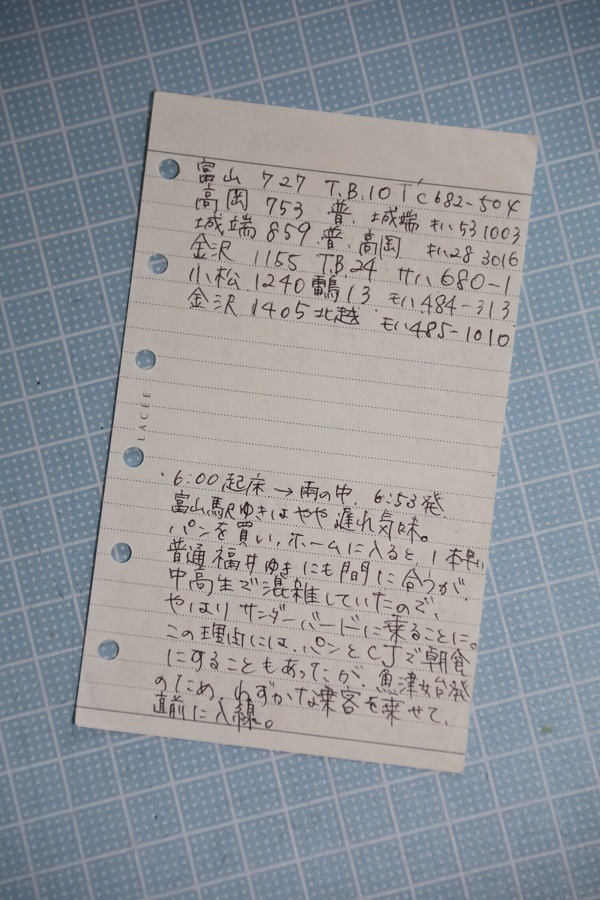 富山 727 T.B.10 Tc682-504
高岡 753 普. 城端 キハ531003
城端 859 普. 高岡 キハ28 3016
金沢 1155 T.B.24 サハ680-1
小松 1240 雷鳥13 モハ484-313
金沢 1405 北越 モハ485-1010
LACÉE
・6:00起床→雨の中、6:53発
富山駅ゆきはやや遅れ気味。
パンを買い、ホームに入ると1本早い
普通福井ゆきにも間に合うが、
中高生で混雑していたので、
やはりサンダーバードに乗ることに。
この理由には、パンとCJで朝食
にすることもあったが、魚津始発
のため、わずかな乗客を乗せて、
直前に入線。